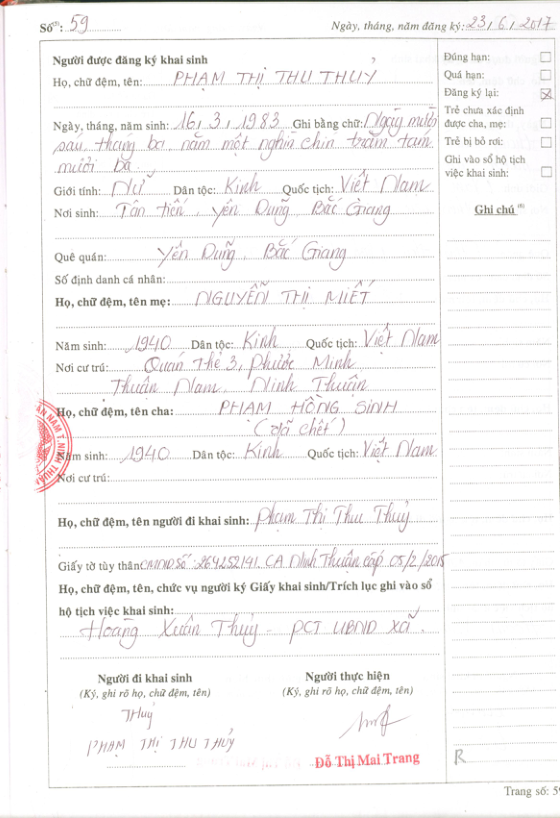 Số⁽⁵⁾: 59
Ngày, tháng, năm đăng ký: 23, 6, 2017
Người được đăng ký khai sinh
Họ, chữ đệm, tên: PHẠM THỊ THU THUỶ
Ngày, tháng, năm sinh: 16, 3, 1983 Ghi bằng chữ: Ngày mười
sáu, tháng ba, năm một nghìn chín trăm tám
mươi ba
Giới tính: Nữ Dân tộc: Kinh Quốc tịch: Việt Nam
Nơi sinh: Tân tiến, Yên Dũng, Bắc Giang
Quê quán: Yên Dũng, Bắc Giang
Số định danh cá nhân:
Họ, chữ đệm, tên mẹ: NGUYỄN THỊ MIẾT
Năm sinh: 1940 Dân tộc: Kinh Quốc tịch: Việt Nam
Nơi cư trú: Quán Thẻ 3, Phước Minh
Thuận Nam, Ninh Thuận
Họ, chữ đệm, tên cha: PHẠM HỒNG SINH
(đã chết)
Năm sinh: 1940 Dân tộc: Kinh Quốc tịch: Việt Nam
Nơi cư trú:
Họ, chữ đệm, tên người đi khai sinh: Phạm Thị Thu Thuỷ
Giấy tờ tùy thân: CMND Số: 264252191. CA Ninh Thuận cấp 05/2/2015
Họ, chữ đệm, tên, chức vụ người ký Giấy khai sinh/Trích lục ghi vào sổ
hộ tịch việc khai sinh:
Hoàng Xuân Thủy - PCT UBND xã.
Người đi khai sinh
(Ký, ghi rõ họ, chữ đệm, tên)
Thuỷ
PHẠM THỊ THU THỦY
Người thực hiện
(Ký, ghi rõ họ, chữ đệm, tên)
Đỗ Thị Mai Trang
Đúng hạn:
Quá hạn:
Đăng ký lại:
Trẻ chưa xác định
được cha, mẹ:
Trẻ bị bỏ rơi:
Ghi vào sổ hộ tịch
việc khai sinh:
Ghi chú ⁽⁶⁾
R
Trang số: 59